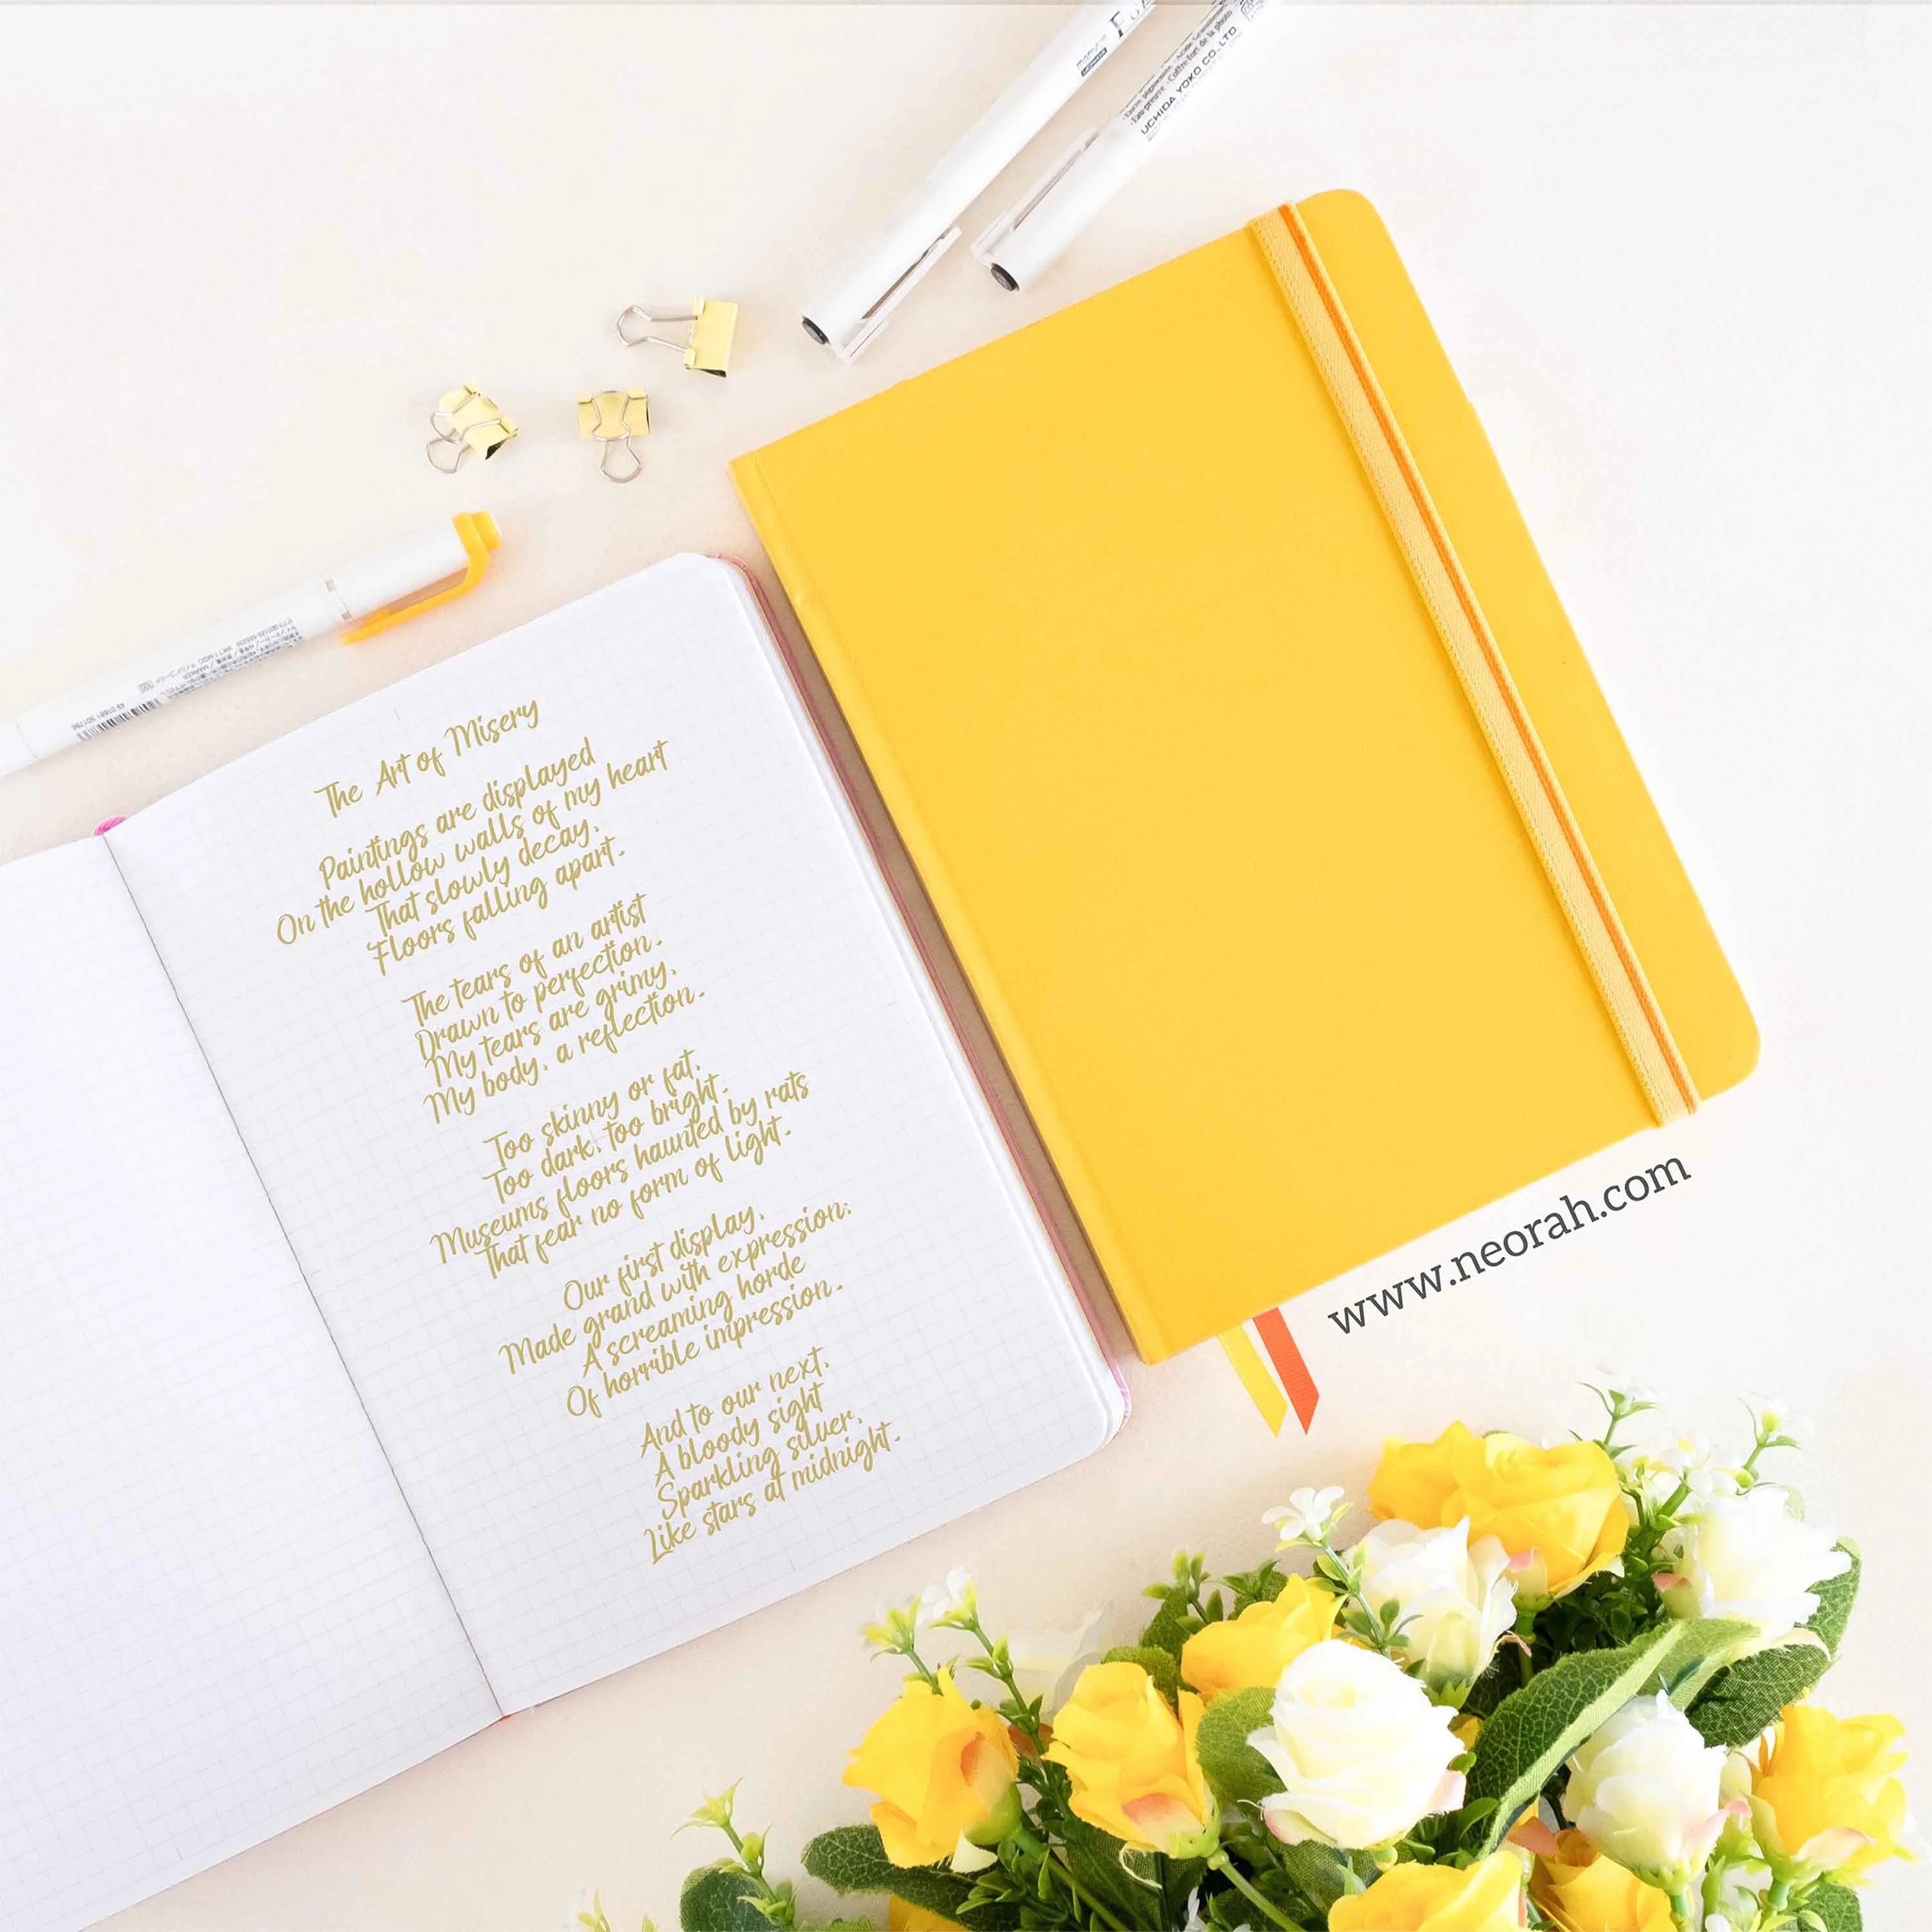 UCHIDA YOKO CO., LTD
The Art of Misery
Paintings are displayed
On the hollow walls of my heart
That slowly decay,
Floors falling apart.
The tears of an artist
Drawn to perfection.
My tears are grimy,
My body, a reflection.
Too skinny or fat,
Too dark, too bright.
Museums floors haunted by rats
That fear no form of light.
Our first display,
Made grand with expression;
A screaming horde
Of horrible impression.
And to our next,
A bloody sight
Sparkling silver,
Like stars at midnight.
www.neorah.com